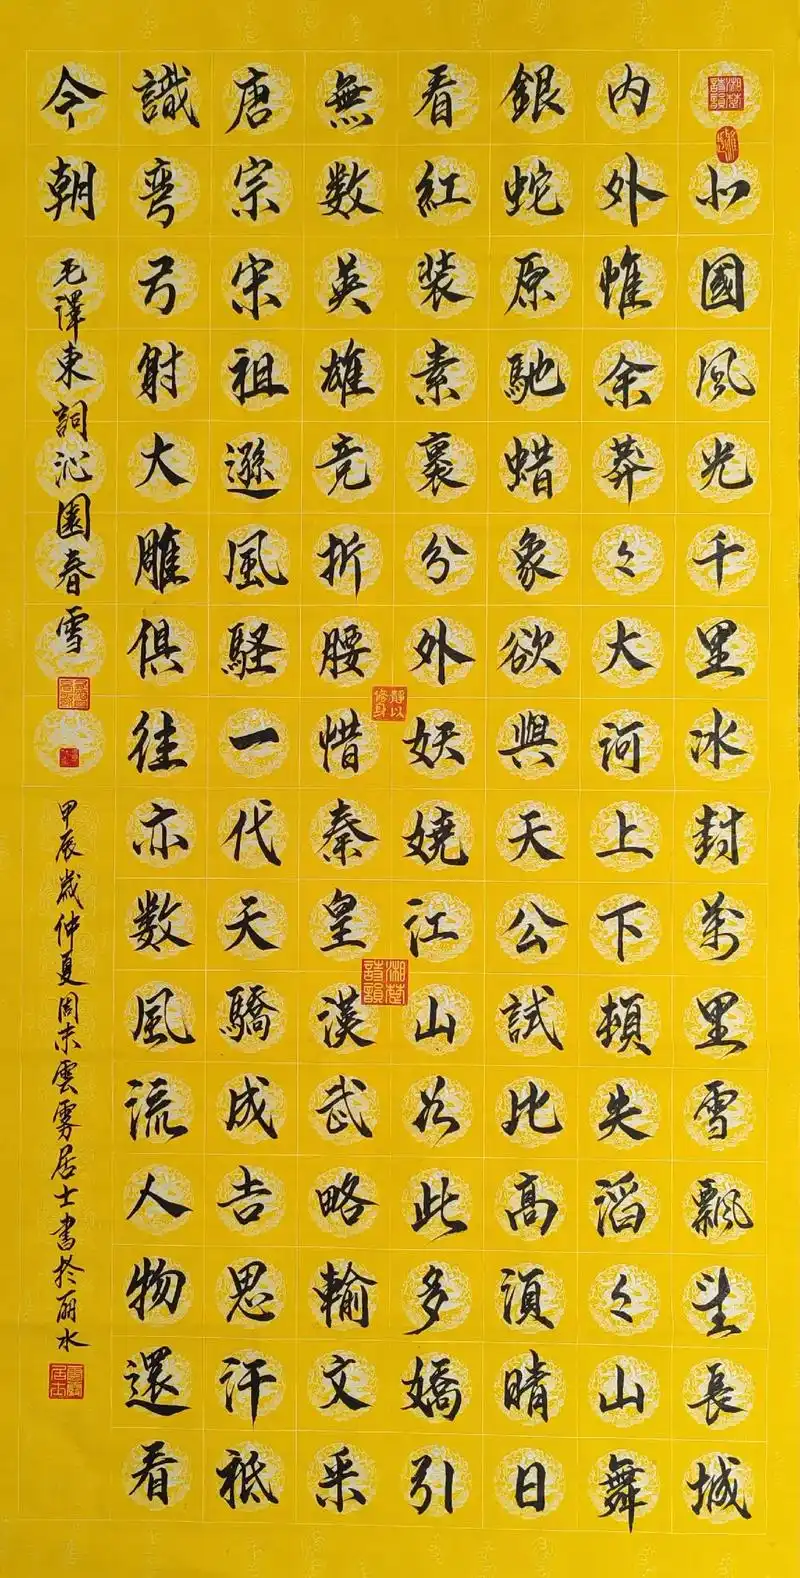 湘楚詩韻
北國風光千里冰封萬里雪飄望長城
内外惟余莽々大河上下頓失滔々山舞
銀蛇原馳蜡象欲與天公試比高須晴日
看紅装素裹分外妖嬈江山如此多嬌引
無数英雄竞折腰惜秦皇漢武略輸文采
唐宗宋祖遜風騷一代天驕成吉思汗祗
識弯弓射大雕俱往亦数風流人物還看
今朝
毛澤東詞沁園春雪
甲辰歲仲夏周末雲雾居士書於丽水
靜以修身
湘楚詩韻